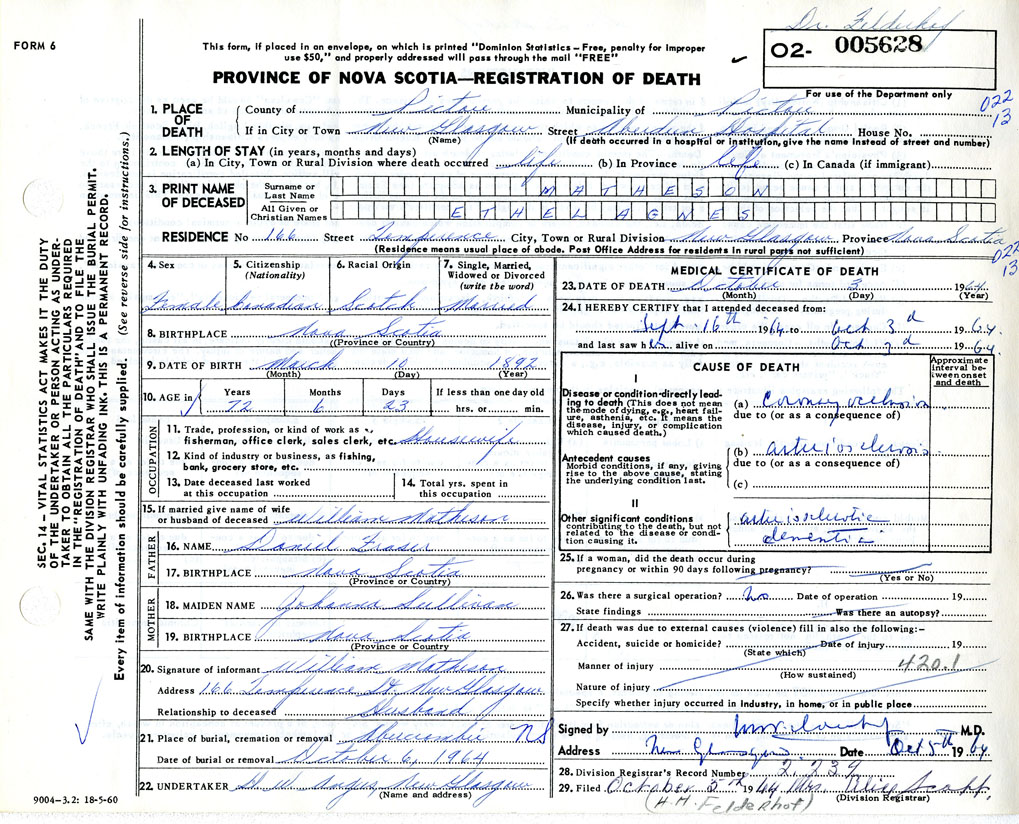 Dr. Felderhof
FORM 6
This form, if placed in an envelope, on which is printed "Dominion Statistics – Free, penalty for improper
use $50," and properly addressed will pass through the mail "FREE"
O2- 005628
For use of the Department only
PROVINCE OF NOVA SCOTIA—REGISTRATION OF DEATH
022
13
1. PLACE OF DEATH
County of Pictou Municipality of Pictou
If in City or Town New Glasgow Street Aberdeen Hospital House No.
(Name) (If death occurred in a hospital or institution, give the name instead of street and number)
2. LENGTH OF STAY (in years, months and days)
(a) In City, Town or Rural Division where death occurred life (b) In Province life (c) In Canada (if immigrant)
3. PRINT NAME OF DECEASED
Surname or Last Name MATHESON
All Given or Christian Names ETHEL AGNES
RESIDENCE No 166 Street Temperence City, Town or Rural Division New Glasgow Province Nova Scotia
(Residence means usual place of abode. Post Office Address for residents in rural parts not sufficient)
022
13
4. Sex
Female
5. Citizenship
(Nationality)
Canadian
6. Racial Origin
Scotch
7. Single, Married,
Widowed or Divorced
(write the word)
Married
8. BIRTHPLACE Nova Scotia
(Province or Country)
9. DATE OF BIRTH March 10 1892
(Month) (Day) (Year)
10. AGE in
Years Months Days If less than one day old
72 6 23 hrs. or min.
OCCUPATION
11. Trade, profession, or kind of work as
fisherman, office clerk, sales clerk, etc. Housewife
12. Kind of industry or business, as fishing,
bank, grocery store, etc.
13. Date deceased last worked
at this occupation
14. Total yrs. spent in
this occupation
15. If married give name of wife
or husband of deceased William Matheson
FATHER
16. NAME Daniel Fraser
17. BIRTHPLACE Nova Scotia
(Province or Country)
MOTHER
18. MAIDEN NAME Johanna Sullivan
19. BIRTHPLACE Nova Scotia
(Province or Country)
20. Signature of informant William Matheson
Address 166 Temperence St. New Glasgow
Relationship to deceased Husband
21. Place of burial, cremation or removal Abercrombie NS
Date of burial or removal October 6, 1964
22. UNDERTAKER New Glasgow
(Name and address)
MEDICAL CERTIFICATE OF DEATH
23. DATE OF DEATH October 3 1964
(Month) (Day) (Year)
24. I HEREBY CERTIFY that I attended deceased from:
Sept. 16th 1964 to Oct 3rd 1964
and last saw her alive on Oct 3rd 1964
CAUSE OF DEATH
Approximate interval between onset and death
I
Disease or condition directly leading to death (This does not mean
the mode of dying, e.g., heart failure, asthenia, etc. It means the
disease, injury, or complication
which caused death.)
(a) coronary occlusion
due to (or as a consequence of)
Antecedent causes
Morbid conditions, if any, giving
rise to the above cause, stating
the underlying condition last.
(b) arteriosclerosis
due to (or as a consequence of)
(c)
II
Other significant conditions
contributing to the death, but not
related to the disease or condition causing it.
arteriosclerotic
dementia
25. If a woman, did the death occur during
pregnancy or within 90 days following pregnancy?
(Yes or No)
26. Was there a surgical operation? No Date of operation 19
State findings Was there an autopsy?
27. If death was due to external causes (violence) fill in also the following:–
Accident, suicide or homicide? Date of injury 19
(State which)
Manner of injury 420.1
(How sustained)
Nature of injury
Specify whether injury occurred in industry, in home, or in public place
Signed by M.D.
Address New Glasgow Date Oct 5th 1964
28. Division Registrar's Record Number 2,239
29. Filed October 5th 1964 Mrs. Alice Scott
(H.H. Felderhof) (Division Registrar)
SEC. 14 – VITAL STATISTICS ACT MAKES IT THE DUTY
OF THE UNDERTAKER OR PERSON ACTING AS UNDERTAKER TO OBTAIN ALL THE PARTICULARS REQUIRED
IN THE "REGISTRATION OF DEATH" AND TO FILE THE
SAME WITH THE DIVISION REGISTRAR WHO SHALL ISSUE THE BURIAL PERMIT.
WRITE PLAINLY WITH UNFADING INK. THIS IS A PERMANENT RECORD.
Every item of information should be carefully supplied. (See reverse side for instructions.)
9004–3.2: 18-5-60